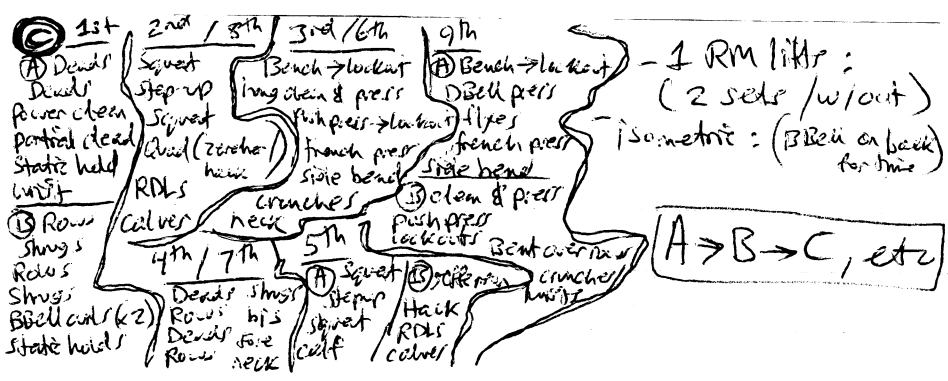 C 1st
A Deads
Deads
Power clean
Partial dead
Static hold
wrist
B Rows
Shrugs
Rows
Shrugs
BBell curls (x2)
Static holds
2nd / 8th
Squat
Step-up
Squat
Quad (zercher/
hack
RDLs
calves
3rd / 6th
Bench → lockout
clean & press
push press → lockout
french press
side bend
crunches
neck
9th
A Bench → lockout
DBell press
flyes
french press
side bend
B clean & press
push press
lockouts
Bent over rows
crunches
4th / 7th
Deads shrugs
Rows bis
Deads fore
Rows neck
5th
A Squat
stepup
squat
calf
B
Hack
RDLs
calves
- 1 RM lifts:
(2 sets /w/out)
- isometric: (BBell on back
for time)
A → B → C, etc